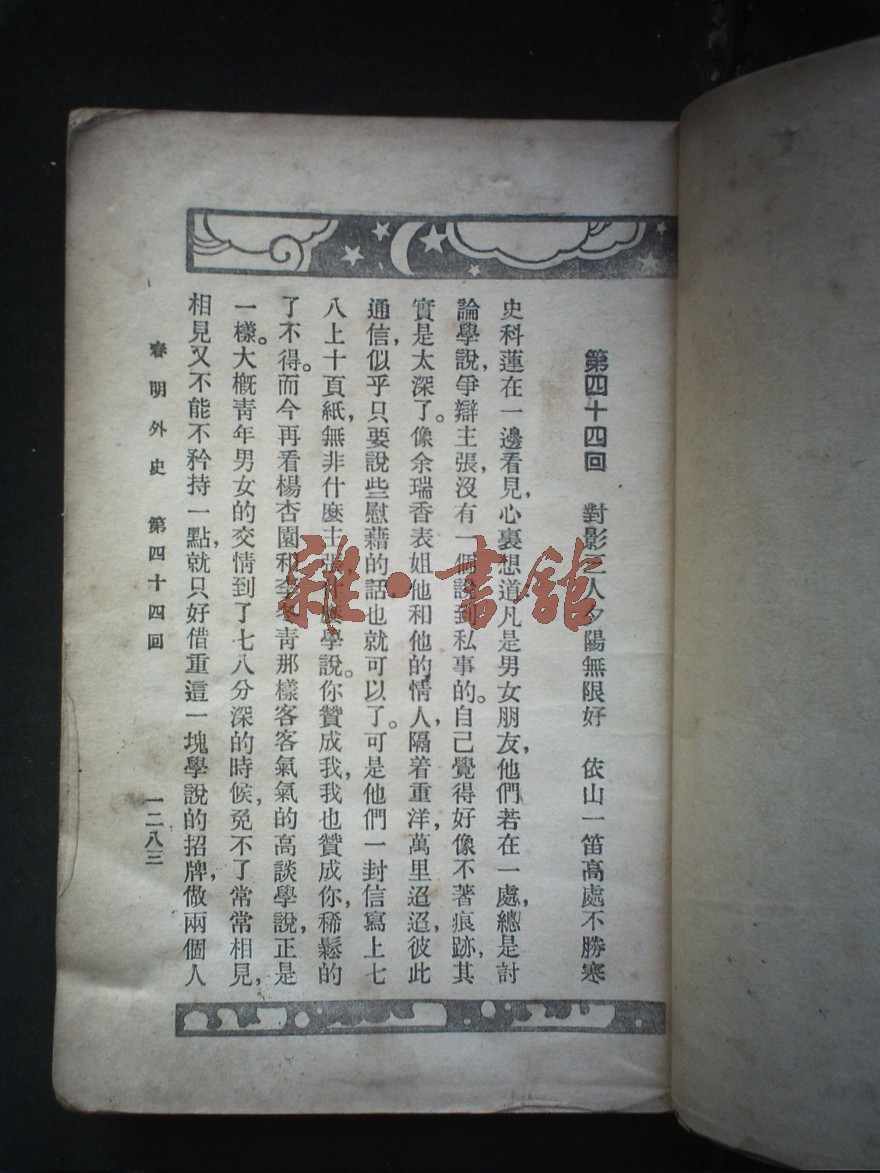 第四十四回　對影三人夕陽無限好　依山一笛高處不勝寒
史科蓮在一邊看見，心裏想道，凡是男女朋友，他們若在一處，總是討
論學說，爭辯主張，沒有一個說到私事的。自己覺得好像不著痕跡，其
實是太深了。像余瑞香表姐他和他的情人，隔着重洋，萬里迢迢，彼此
通信，似乎只要說些慰藉的話，也就可以了。可是他們一封信寫上七
八上十頁紙，無非什麼主張，什麼學說。你贊成我，我也贊成你，稀鬆的
了不得。而今再看楊杏園和李冬青那樣客客氣氣的高談學說，正是
一樣。大概青年男女的交情到了七八分深的時候，免不了常常相見，
相見又不能不矜持一點，就只好借重這一塊學說的招牌，做兩個人
春明外史　第四十四回　一二八三
雜·書館